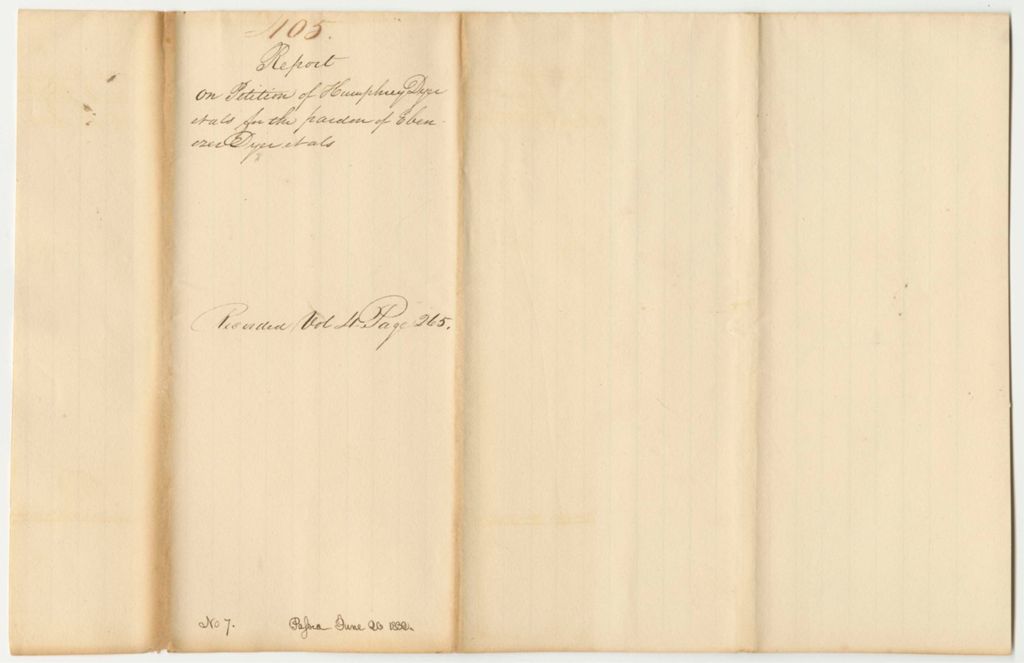 405.
Report
on Petition of Humphrey Dyer
et als for the pardon of Eben-
ezer Dyer et als
Recorded Vol 4 Page 265.
No 7. Passed June 26 1832.